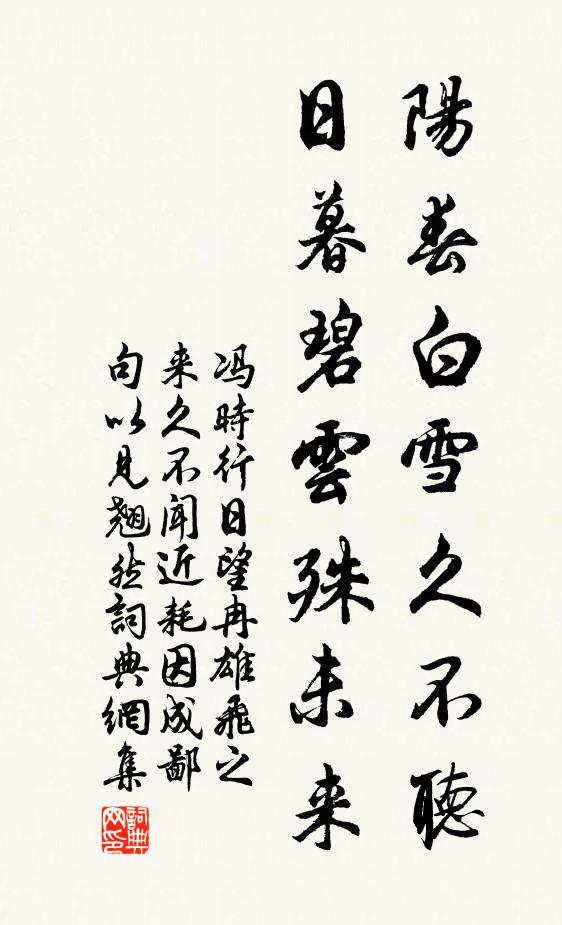 陽春白雪久不聽
日暮碧雲殊未来
冯時行日望冉雄飛之
来久不闻近耗因成鄙
句以見翘然詞典網集
詞典
网印